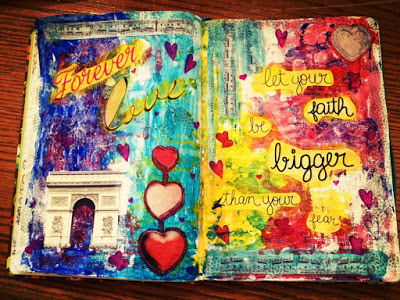 Forever
love
let your
faith
be
bigger
than your
fear